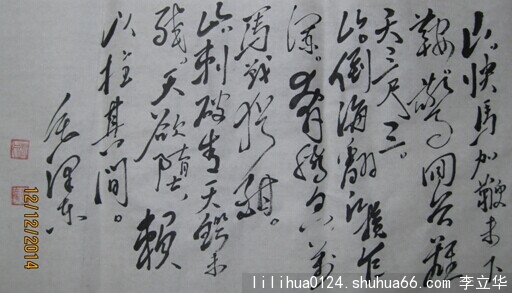 山。快馬加鞭未下
鞍。驚回首離
天三尺三。
山。倒海翻江卷巨
瀾。奔騰急萬
馬戰猶酣。
山。刺破青天鍔未
殘。天欲墮，賴
以拄其間。
毛澤東
12/12/2014
lilihua0124.shuhua66.com 李立华